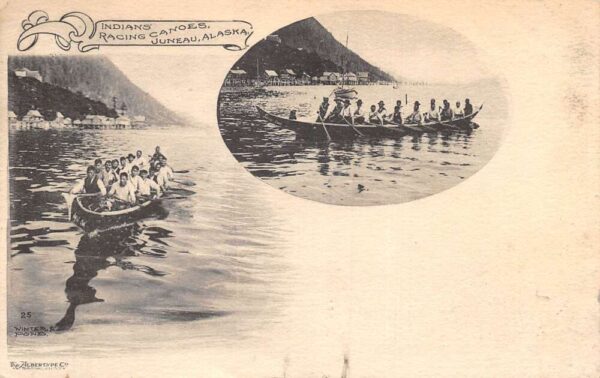 INDIANS'
RACING CANOES.
JUNEAU, ALASKA.
25
WINTER &
POND
THE ALBERTYPE CO